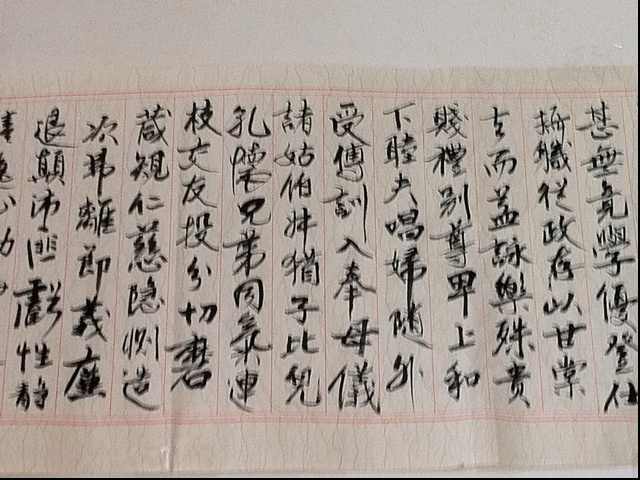 甚無竟學優登仕
攝職從政存以甘棠
去而益詠樂殊貴
賤禮別尊卑上和
下睦夫唱婦隨外
受傅訓入奉母儀
諸姑伯叔猶子比兒
孔懷兄弟同氣連
枝交友投分切磨
箴規仁慈隱惻造
次弗離節義廉
退顛沛匪虧性靜
情逸心動